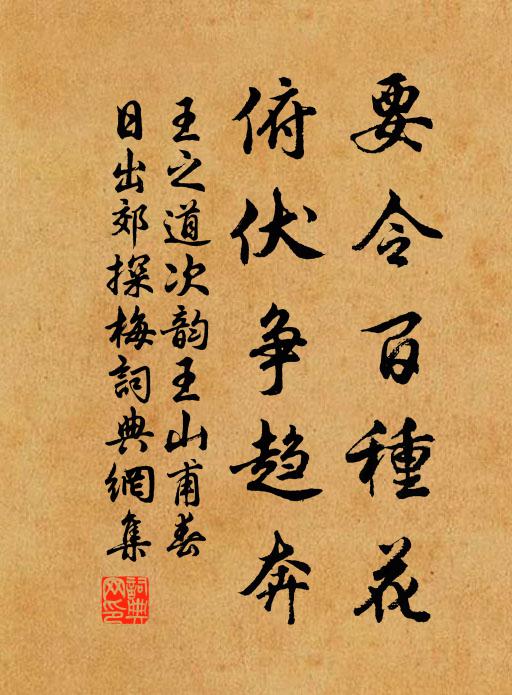 要令百種花
俯伏争趋奔
王之道次韵王山甫春
日出郊探梅詞典網集
詞典網印